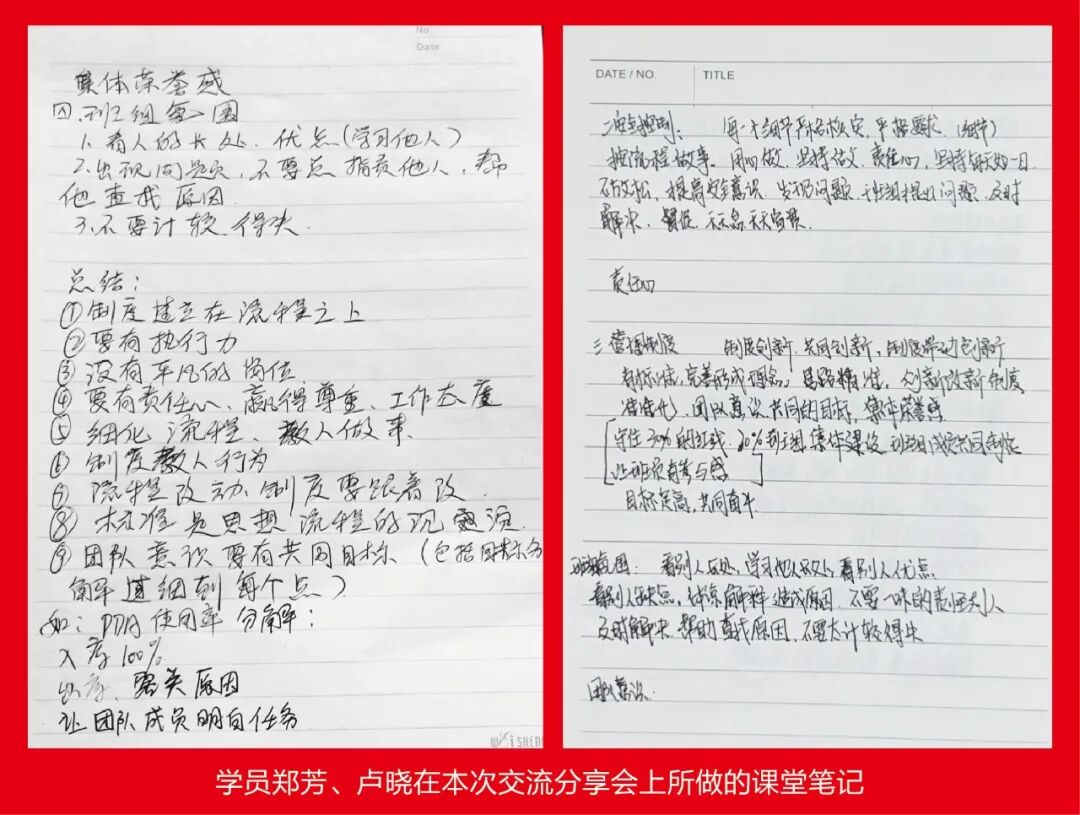 No.
Date
集体荣誉感
四.班组氛围
1.看人的长处、优点(学习他人)
2.出现问题,不要总指责他人,帮
他查找原因.
3.不要计较得失.
总结:
①制度建立在流程之上
②要有执行力
③没有平凡的岗位
④要有责任心、赢得尊重、工作态度
⑤细化流程、教人做事
⑥制度教人行为
⑦流程改动,制度要跟着改.
⑧标准是思想流程的沉淀.
⑨团队意识要有共同目标(包括目标分
解过细到每个点)
如:PDA使用率分解:
入库100%
出库、原因
让团队成员明白任务
DATE / NO.
TITLE
严格要求.(细节)
按流程做事.用心做.坚持做.责任心,坚持每天如一日
不放松,提高安全意识.发现问题.班组提出问题.及时
解决.督促.天天念天天宣贯.
责任心
三管理制度 制度创新.共同创新,制度带动创新
有标准,完善形成理念,思路精准.创新改新制度
标准化,团队意识.共同的目标,集体荣誉感
让班员有参与感
目标定高,共同奋斗.
班组氛围:看别人长处,学习他人长处,看别人优点.
看别人缺点,体谅解释造成原因.不要一味的责怪别人
及时解决.帮助查找原因.不要太计较得失
团队意识.
学员郑芳、卢晓在本次交流分享会上所做的课堂笔记